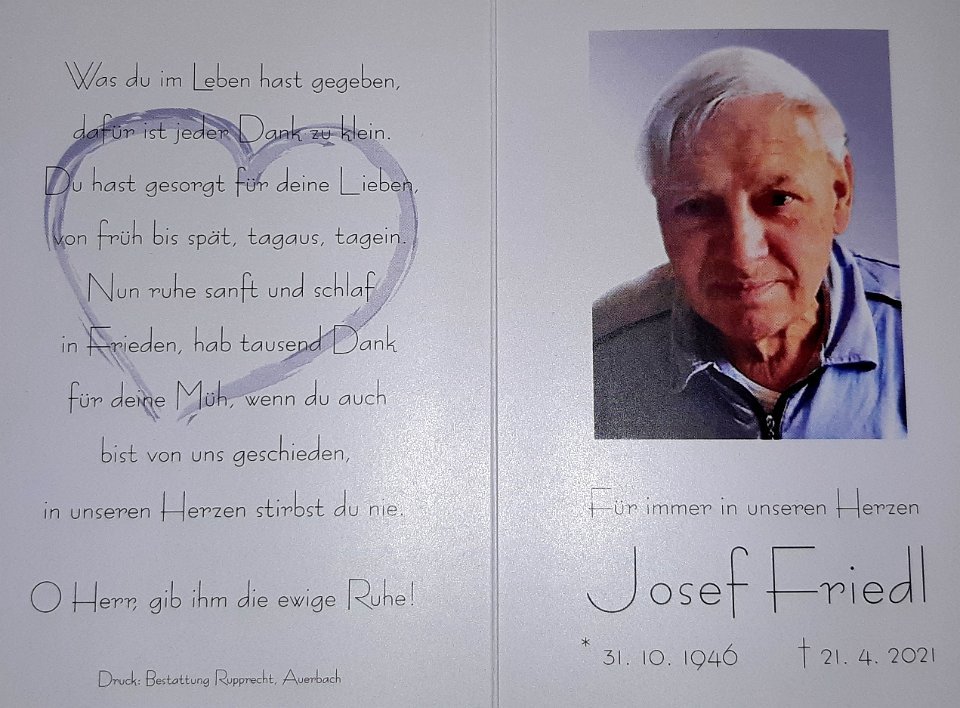 Was du im Leben hast gegeben,
dafür ist jeder Dank zu klein.
Du hast gesorgt für deine Lieben,
von früh bis spät, tagaus, tagein.
Nun ruhe sanft und schlaf
in Frieden, hab tausend Dank
für deine Müh, wenn du auch
bist von uns geschieden,
in unseren Herzen stirbst du nie.
O Herr, gib ihm die ewige Ruhe!
Druck: Bestattung Rupprecht, Auerbach
Für immer in unseren Herzen
Josef Friedl
* 31. 10. 1946 † 21. 4. 2021